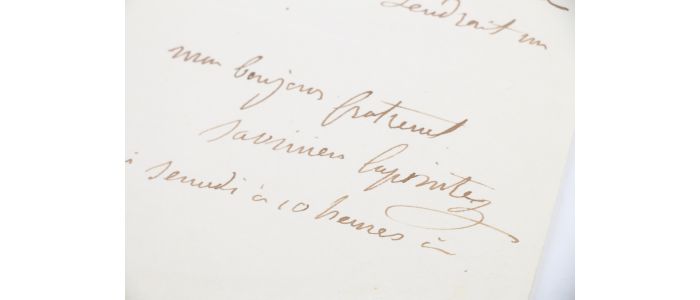 Lendroit un
mon boujour fraternel
savinien lapointe
à samedi à 10 heures à